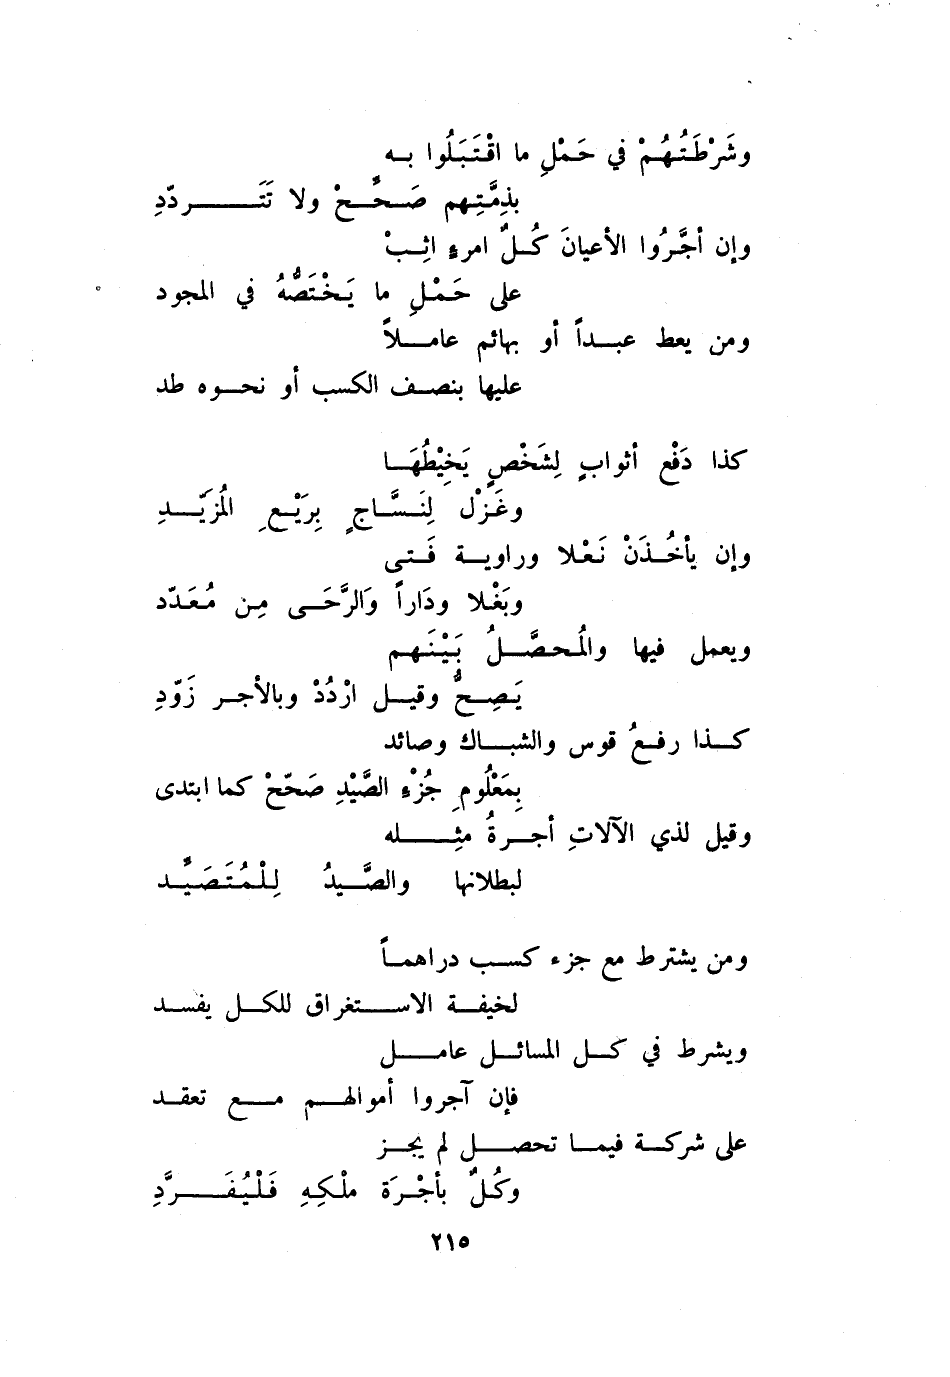 وشَرْطَتُهُمْ في حَمْلِ ما اقْتَبَلُوا به
بذِمَّتِهم صَحِّحْ ولا تَتَردّدِ
وإن أجَّرُوا الأعيانَ كُلٌ امرءٍ اثِبْ
على حَمْلِ ما يَخْتَصُّهُ في المجود
ومن يعط عبداً أو بهائم عاملاً
عليها بنصف الكسب أو نحوه طد
كذا دَفْع أثوابٍ لِشَخْصٍ يَخِيْطُهَا
وغَزْل لِنَسَّاجٍ بِرَيْعِ المُزَيَّدِ
وإن يأخُذَنْ نَعْلا وراوية فَتى
وبَغْلا ودَاراً وَالرَّحَى مِن مُعَدّد
ويعمل فيها والمُحصَّلُ بَيْنَهم
يَصِحُّ وقيل ارْدُدْ وبالأجر زَوّدِ
كذا رفعُ قوس والشباك وصائد
بِمَعْلُومِ جُزْءِ الصَّيْدِ صَحّحْ كما ابتدى
وقيل لذي الآلاتِ أجرةُ مثِله
لبطلانها والصَّيدُ لِلْمُتَصَيِّد
ومن يشترط مع جزء كسب دراهماً
لخيفة الاستغراق للكل يفسد
ويشرط في كل المسائل عامل
فإن آجروا أموالهم مع تعقد
على شركة فيما تحصل لم يجز
وكُلٌ بأجْرَة ملْكِهِ فَلْيُفَرَّدِ
٢١٥